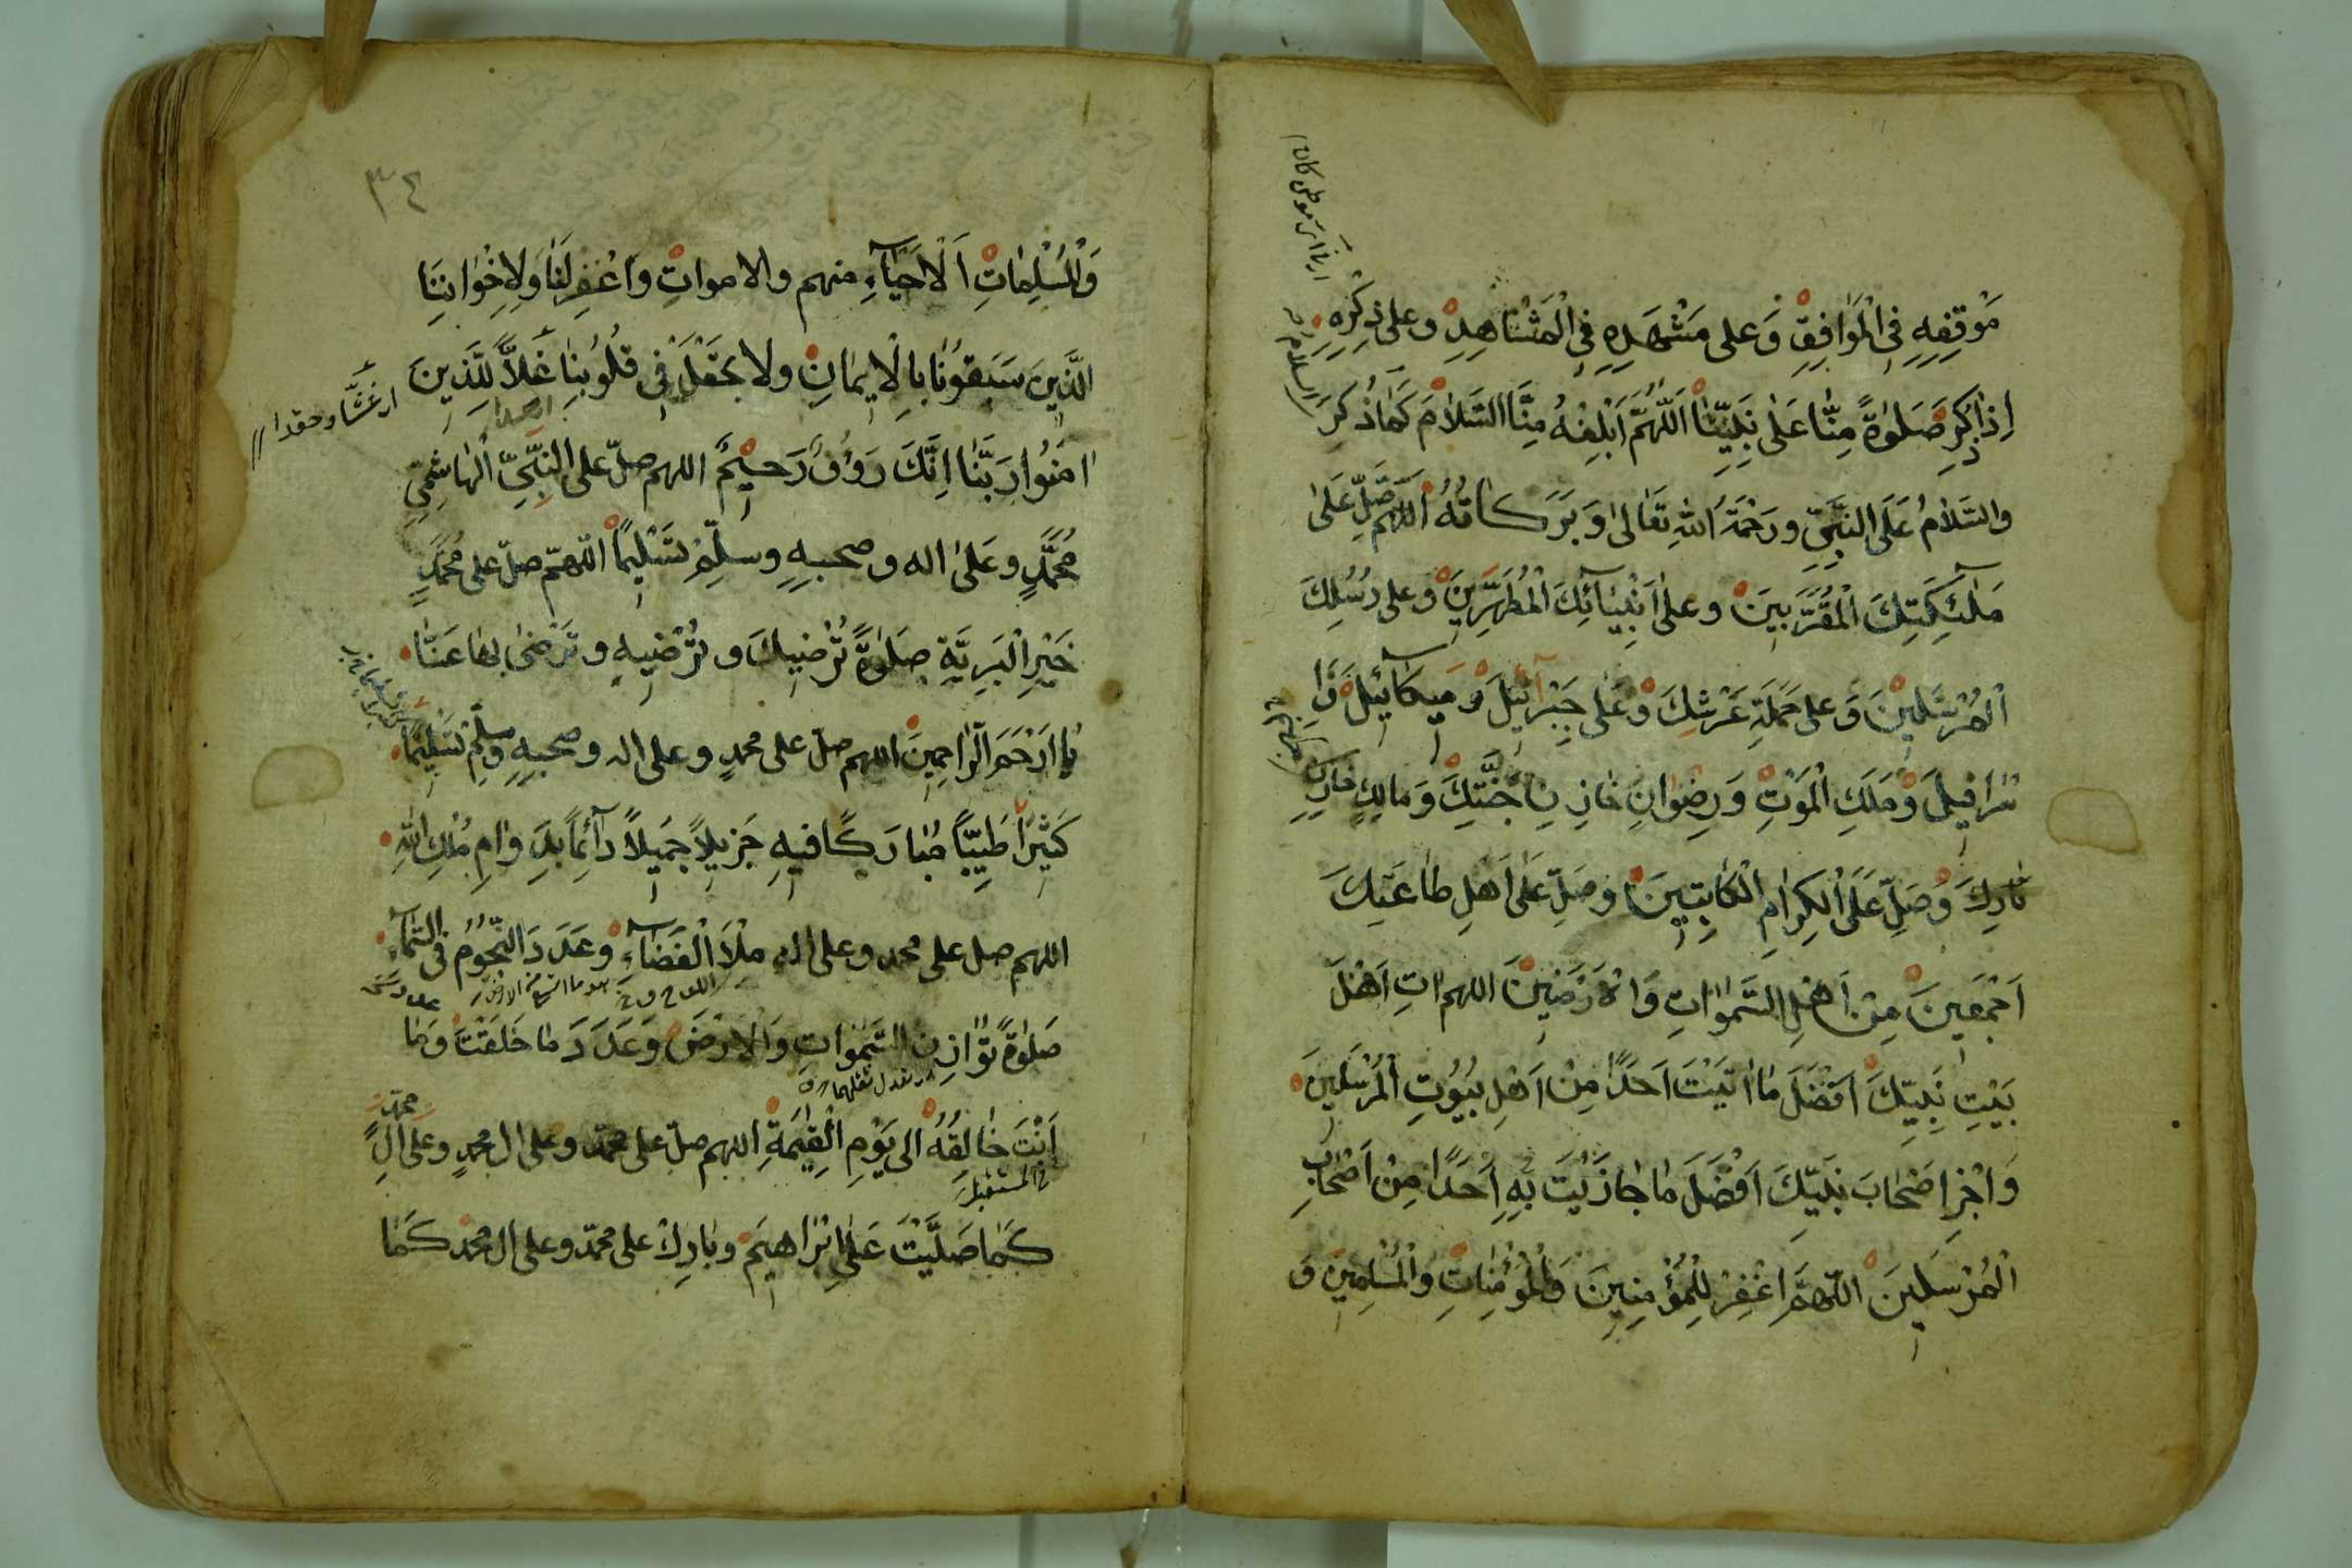 مَوْقِفِهِ فِي الْمَوَاقِفِ وَعلى مَشْهَدِهِ فِي الْمَشَاهِدِ وعلى ذِكْرِهِ
اِذَا ذُكِرَ صَلٰوةً مِنَّا عَلٰى نَبِيِّنَا اَللّٰهُمَّ اَبْلِغْهُ مِنَّا السَّلَامَ كَمَا ذُكِرَ
والسَّلَامُ عَلَى النَّبِيِّ ورَحْمَةُ اللّٰهِ تَعَالٰى وَبَرَكَاتُهُ اَللّٰهُمَّ صَلِّ عَلٰى
مَلٰٓئِكَتِكَ الْمُقَرَّبِينَ وعلى اَنْبِيَآئِكَ الْمُطَهَّرِينَ وعلى رُسُلِكَ
الْمُرْسَلِينَ وَعلى حَمَلَةِ عَرْشِكَ وَعَلٰى جِبْرَآئِيلَ وَمِيكَآئِيلَ وَاِ
سْرَافِيلَ وَمَلَكِ الْمَوْتِ وَرِضْوَانِ خَازِنِ جَنَّتِكَ وَمَالِكٍ خَازِنِ
نَارِكَ وَصَلِّ عَلَى الْكِرَامِ الْكَاتِبِينَ وصَلِّ عَلٰى اَهْلِ طَاعَتِكَ
اَجْمَعِينَ مِنْ اَهْلِ السَّمٰوَاتِ وَالْاَرَضِينَ اللهم اٰتِ اَهْلَ
بَيْتِ نَبِيِّكَ اَفْضَلَ مَا اٰتَيْتَ اَحَدًا مِنْ اَهْلِ بُيُوتِ الْمُرْسَلِينَ
وَاجْزِ اَصْحَابَ نَبِيِّكَ اَفْضَلَ مَا جَازَيْتَ بِهِ اَحَدًا مِنْ اَصْحَابِ
الْمُرْسَلِينَ اللّٰهُمَّ اغْفِرْ لِلْمُؤْمِنِينَ وَالْمُؤْمِنَاتِ وَالْمُسْلِمِينَ وَ
٣٤
وَالْمُسْلِمَاتِ اَلْاَحْيَآءِ منهم والاموات وَاغْفِرْ لَنَا وَلِاِخْوَانِنَا
الَّذِينَ سَبَقُونَا بِالْاِيمَانِ ولا تَجْعَلْ فِي قُلُوبِنَا غِلًّا لِلَّذِينَ
اٰمَنُوا رَبَّنَا اِنَّكَ رَؤُفٌ رَحِيمٌ اللهم صلّ على النَّبِيِّ الْهَاشِمِيِّ
مُحَمَّدٍ وعَلٰى اله وصحبِهِ وسلِّمْ تَسْلِيمًا اللّٰهمّ صلّ على مُحَمَّدٍ
خَيْرِ الْبَرِيَّةِ صَلٰوةً تُرْضِيكَ وتُرْضِيهِ وتَرْضٰى بِهَا عَنَّا
يَا اَرْحَمَ الرَّاحِمِينَ اللهم صلّ على محمدٍ وعلى اله وصحبِهِ وسَلِّمْ تَسْلِيمًا
كَثِيرًا طَيِّبًا مُبَارَكًا فِيهِ جَزِيلًا جَمِيلًا دَآئِمًا بِدَوَامِ مُلْكِ اللّٰهِ
اللهم صل على محمد وعلى اله مِلْاَ الْفَضَآءِ وعَدَدَ النُّجُومِ فِي السَّمَآءِ
صَلٰوةً تُوَازِنُ السَّمٰوَاتِ وَالْاَرْضَ وَعَدَدَ مَا خَلَقْتَ وَمَا
اَنْتَ خَالِقُهُ الى يَوْمِ الْقِيٰمَةِ اللهم صلّ على محمّد وعلى ال محمدٍ وعلى اٰلِ
محمّد
فى المستقبل
كَمَا صَلَّيْتَ عَلٰى اِبْرَاهِيمَ وبَارِكْ على محمّد وعلى ال محمد كَمَا
اى غشًّا وحقدا